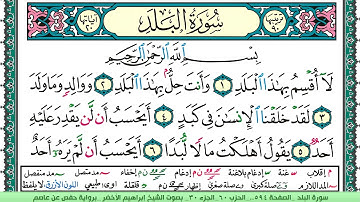 ترتيبها ٩٠
سُورَةُ الْبَلَدِ
آياتها ٢٠
بِسْمِ اللَّهِ الرَّحْمَٰنِ الرَّحِيمِ
لَا أُقْسِمُ بِهَٰذَا الْبَلَدِ ١ وَأَنتَ حِلٌّ بِهَٰذَا الْبَلَدِ ٢ وَوَالِدٍ وَمَا وَلَدَ
٣ لَقَدْ خَلَقْنَا الْإِنسَٰنَ فِي كَبَدٍ ٤ أَيَحْسَبُ أَن لَّن يَقْدِرَ عَلَيْهِ
أَحَدٌ ٥ يَقُولُ أَهْلَكْتُ مَالًا لُّبَدًا ٦ أَيَحْسَبُ أَن لَّمْ يَرَهُۥٓ أَحَدٌ
سورة البلد الصفحة ٥٩٤ الحزب ٦٠ الجزء ٣٠ بصوت الشيخ ابراهيم الأخضر برواية حفص عن عاصم